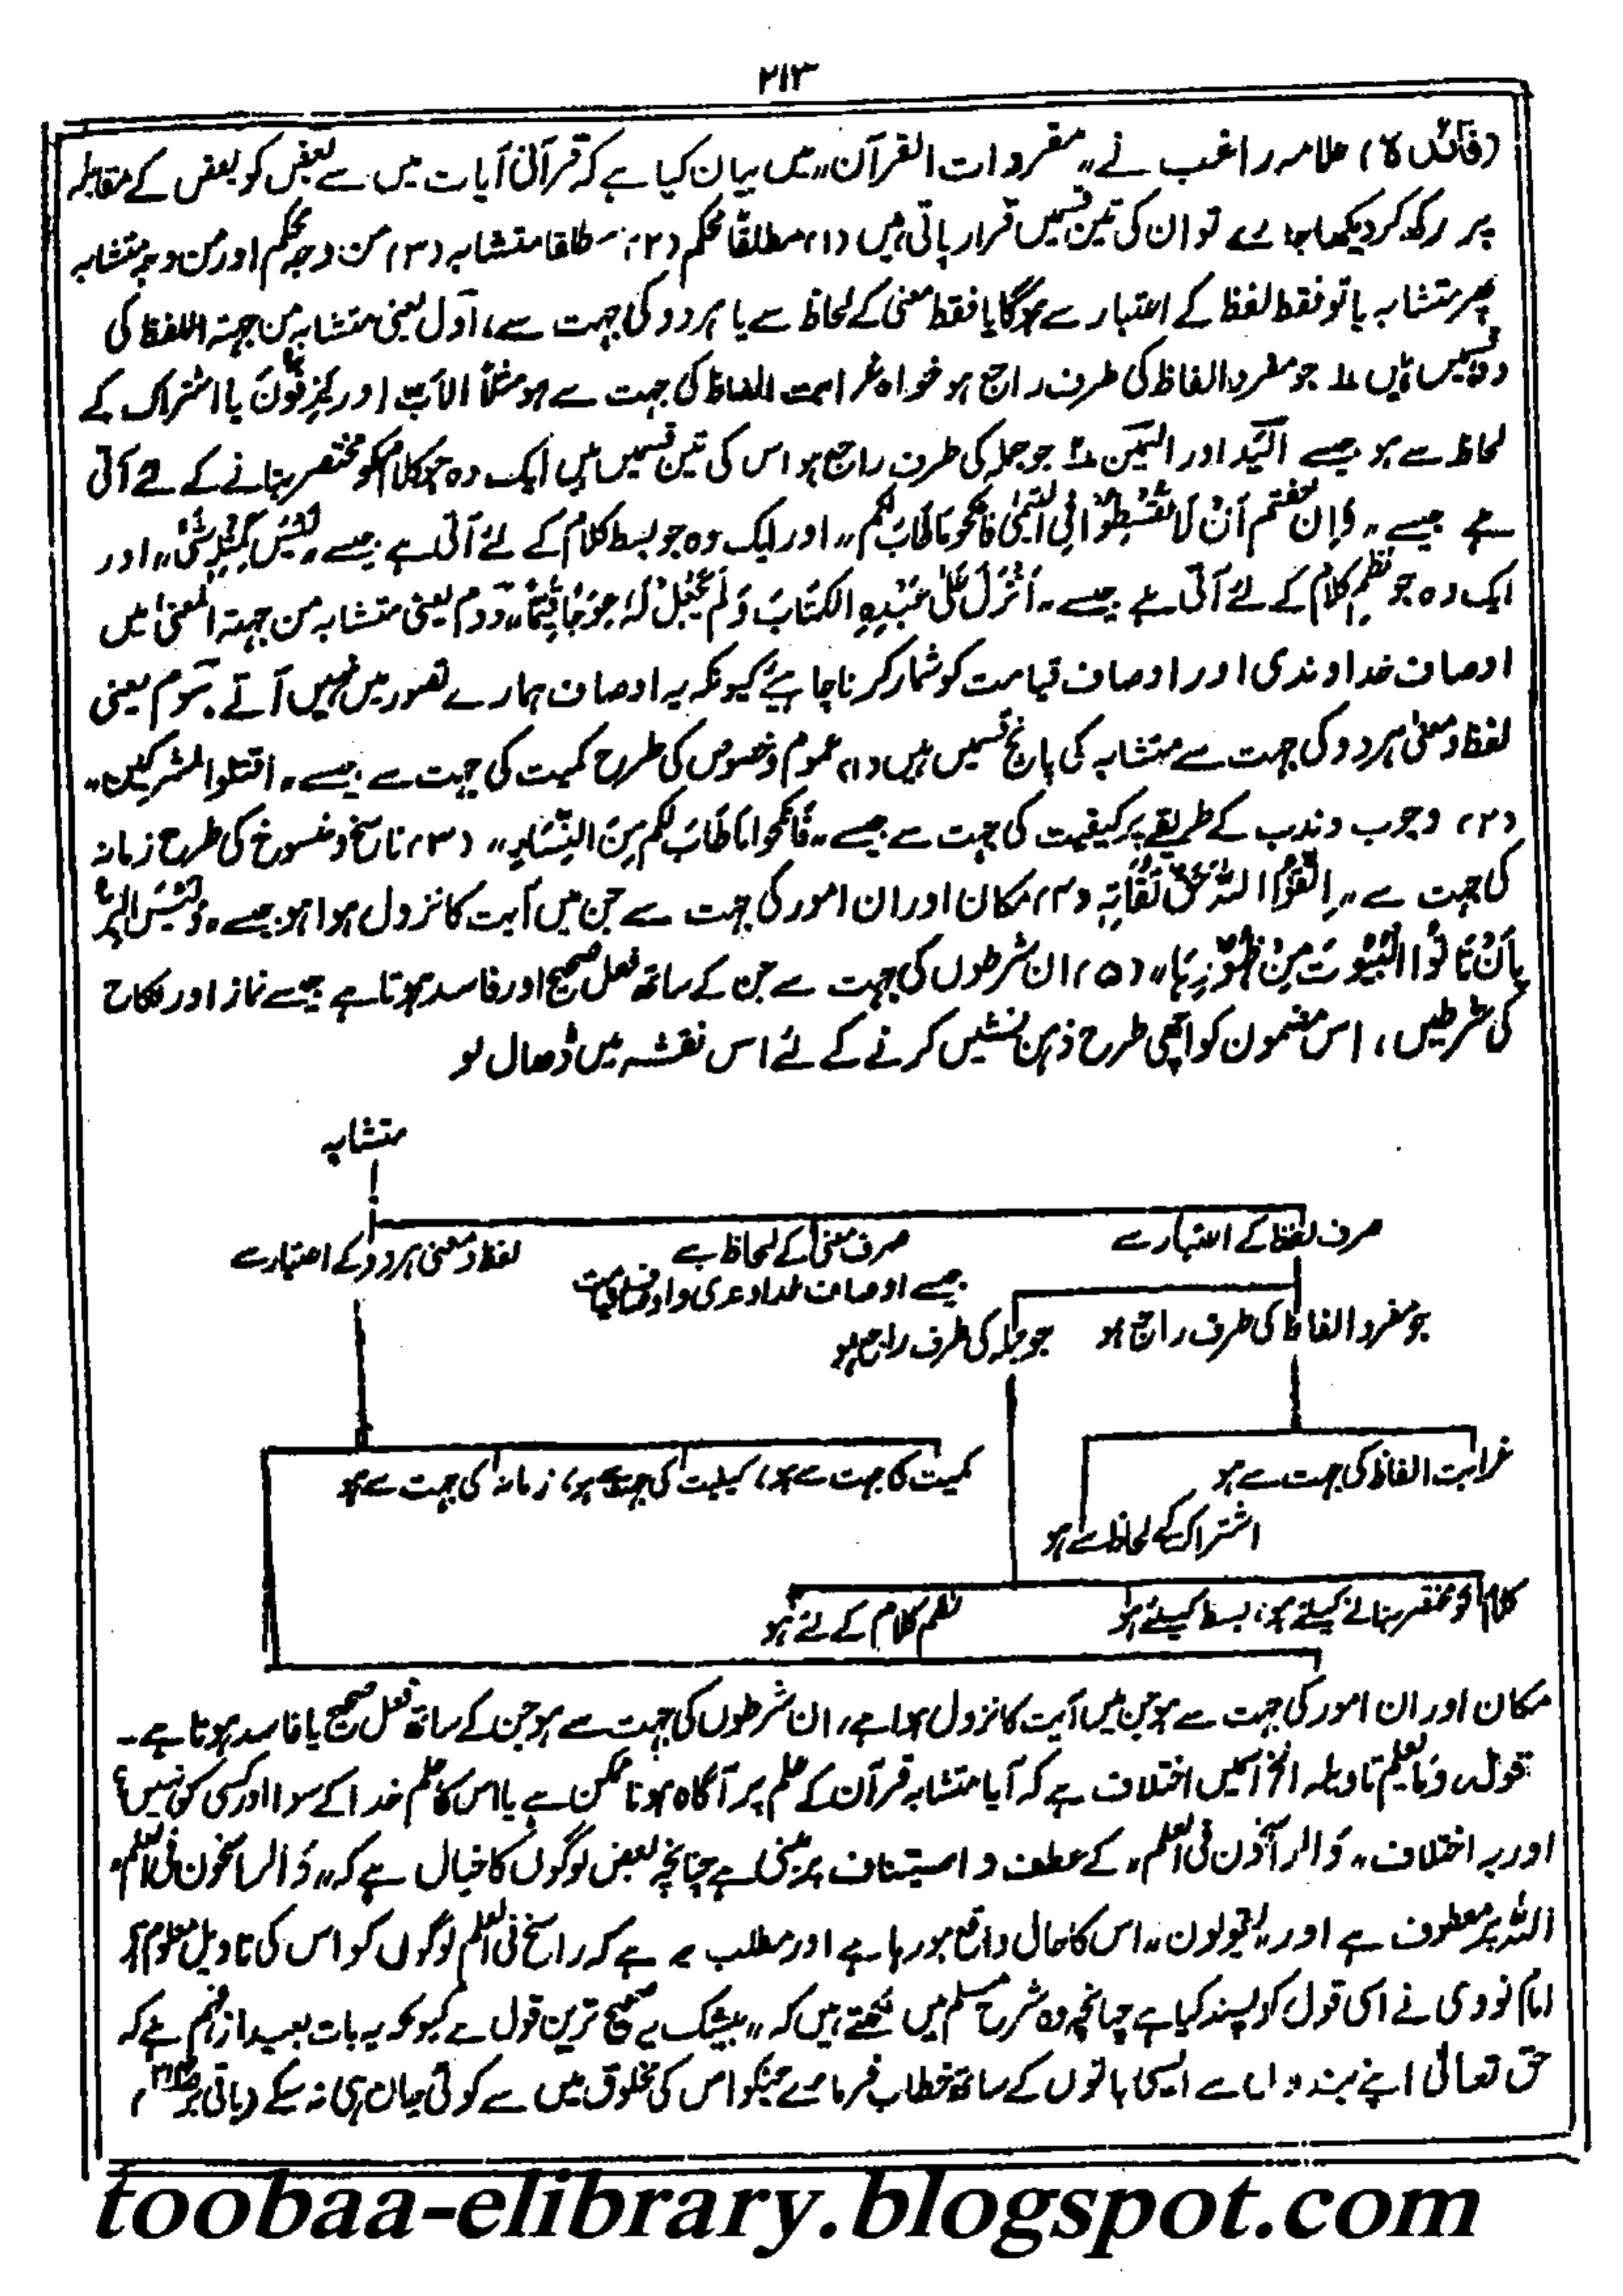 ۲۱۳
(فائدہ) علامہ راغب نے ،،مفردات القرآن،، میں بیان کیا ہے کہ قرآنی آیات میں سے بعض کو بعض کے مقابلہ
پر رکھ کر دیکھا جائے تو ان کی تین قسمیں قرار پاتی ہیں (۱) مطلقاً محکم (۲) مطلقا متشابہ (۳) من وجہ محکم اور من وجہ متشابہ
پھر متشابہ یا تو فقط لفظ کے اعتبار سے ہوگا یا فقط معنی کے لحاظ سے یا ہر دو کی جہت سے، اول یعنی متشابہ من جہتہ اللفظ کی
دو قسمیں ہیں ۱ جو مفرد الفاظ کی طرف راجع ہو خواہ غرابت الفاظ کی جہت سے ہو مثلاً الاَبّ اور یَزِفُّونَ یا اشتراک کے
لحاظ سے ہو جیسے اَلْیَد اور الیمین ۲ جو جملہ کی طرف راجع ہو اس کی تین قسمیں ہیں ایک وہ جو کلام کو مختصر بنانے کے لئے آتی
ہے جیسے ،،وَاِنْ خِفْتُمْ اَنْ لَا تُقْسِطُوْا فِی الْیَتٰمٰی فَانْکِحُوْا مَا طَابَ لَکُمْ،، اور ایک وہ جو بسط کلام کے لئے آتی ہے جیسے ،،لَیْسَ کَمِثْلِہٖ شَیْءٌ،، اور
ایک وہ جو نظم کلام کے لئے آتی ہے جیسے ،،اَنْزَلَ عَلٰی عَبْدِہِ الکِتَابَ وَلَمْ یَجْعَلْ لَہٗ عِوَجًا قَیِّمًا،، دوم یعنی متشابہ من جہتہ المعنیٰ میں
اوصاف خداوندی اور اوصاف قیامت کو شمار کرنا چاہیئے کیونکہ یہ اوصاف ہمارے تصور میں نہیں آتے، سوم یعنی
لفظ و معنیٰ ہر دو کی جہت سے متشابہ کی پانچ قسمیں ہیں (۱) عموم و خصوص کی طرح کمیت کی جہت سے جیسے ،،اقتلوا المشرکین،،
(۲) وجوب و ندب کے طریقے پر کیفیت کی جہت سے جیسے ،،فَانْکِحُوا مَا طَابَ لَکُمْ مِنَ النِّسَاءِ،، (۳) ناسخ و منسوخ کی طرح زمانہ
کی جہت سے ،،اِتَّقُوا اللّٰہَ حَقَّ تُقَاتِہٖ (۴) مکان اور ان امور کی جہت سے جن میں آیت کا نزول ہوا ہو جیسے ،،وَلَیْسَ الْبِرُّ
بِاَنْ تَأْتُوا الْبُیُوْتَ مِنْ ظُہُوْرِہَا،، (۵) ان شرطوں کی جہت سے جن کے ساتھ فعل صحیح اور فاسد ہوتا ہے جیسے نماز اور نکاح
کی شرطیں، اس مضمون کو اچھی طرح ذہن نشیں کرنے کے لئے اس نقشہ میں ڈھال لو
متشابہ
صرف لفظ کے اعتبار سے
صرف معنی کے لحاظ سے
لفظ و معنی ہر دو کے اعتبار سے
جیسے اوصاف خداوندی و اوصاف قیامت
جو مفرد الفاظ کی طرف راجع ہو
جو جملہ کی طرف راجع ہو
غرابت الفاظ کی جہت سے ہو
کمیت کا جہت سے ہو، کیفیت کی جہت سے ہو، زمانہ کی جہت سے ہو
اشتراک کے لحاظ سے ہو
کلام کو مختصر بنانے کیلئے ہو، بسط کیلئے ہو
نظم کلام کے لئے ہو
مکان اور ان امور کی جہت سے ہو جن میں آیت کا نزول ہوا ہے، ان شرطوں کی جہت سے ہو جن کے ساتھ فعل صحیح یا فاسد ہوتا ہے۔
قولہ، وَمَا یعلیم تاویلہ الخ اسمیں اختلاف ہے کہ آیا متشابہ قرآن کے علم پر آگاہ ہونا ممکن ہے یا اس کا علم خدا کے سوا اور کسی کو نہیں؟
اور یہ اختلاف ،،وَالراسخون فی العلم،، کے عطف و استیناف پر مبنی ہے چنانچہ بعض لوگوں کا خیال ہے کہ ،،وَالراسخون فی العلم،،
اللہ پر معطوف ہے اور ،،یقولون،، اس کا حال واقع ہو رہا ہے اور مطلب یہ ہے کہ راسخ فی العلم لوگوں کو اس کی تاویل معلوم ہے
امام نووی نے اسی قول کو پسند کیا ہے چنانچہ وہ شرح مسلم میں لکھتے ہیں کہ ،،بیشک یہ صحیح ترین قول ہے کیونکہ یہ بات بعید از فہم ہے کہ
حق تعالیٰ اپنے بندوں سے ایسی باتوں کے ساتھ خطاب فرمائے جنکو اس کی مخلوق میں سے کوئی جان ہی نہ سکے (باقی بر
toobaa-elibrary.blogspot.com